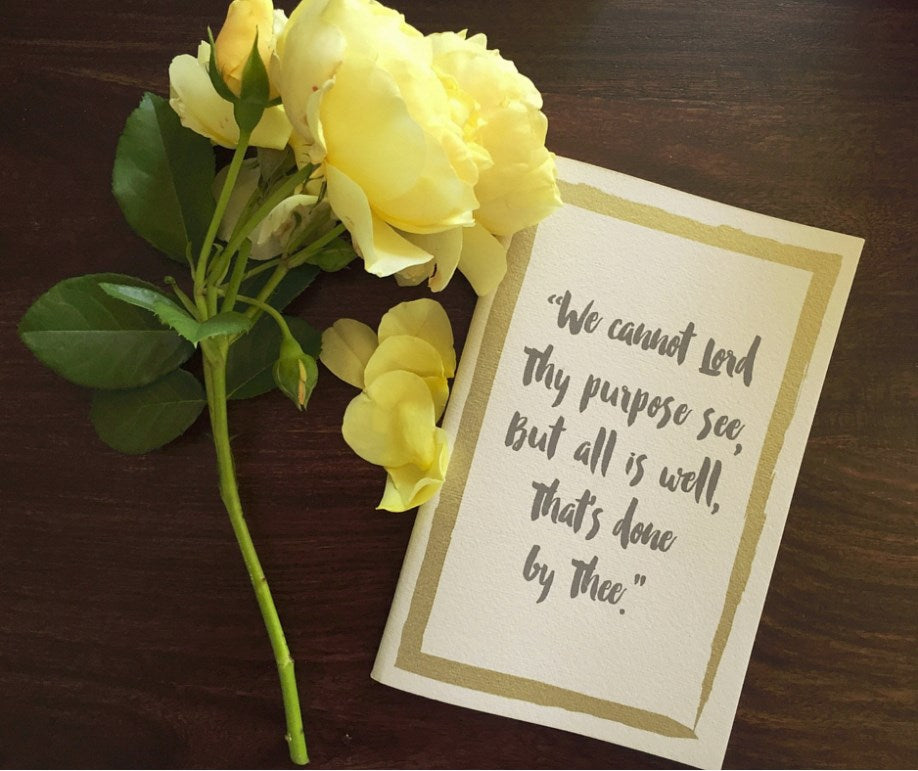 “We cannot Lord
Thy purpose see,
But all is well,
That's done
by Thee."